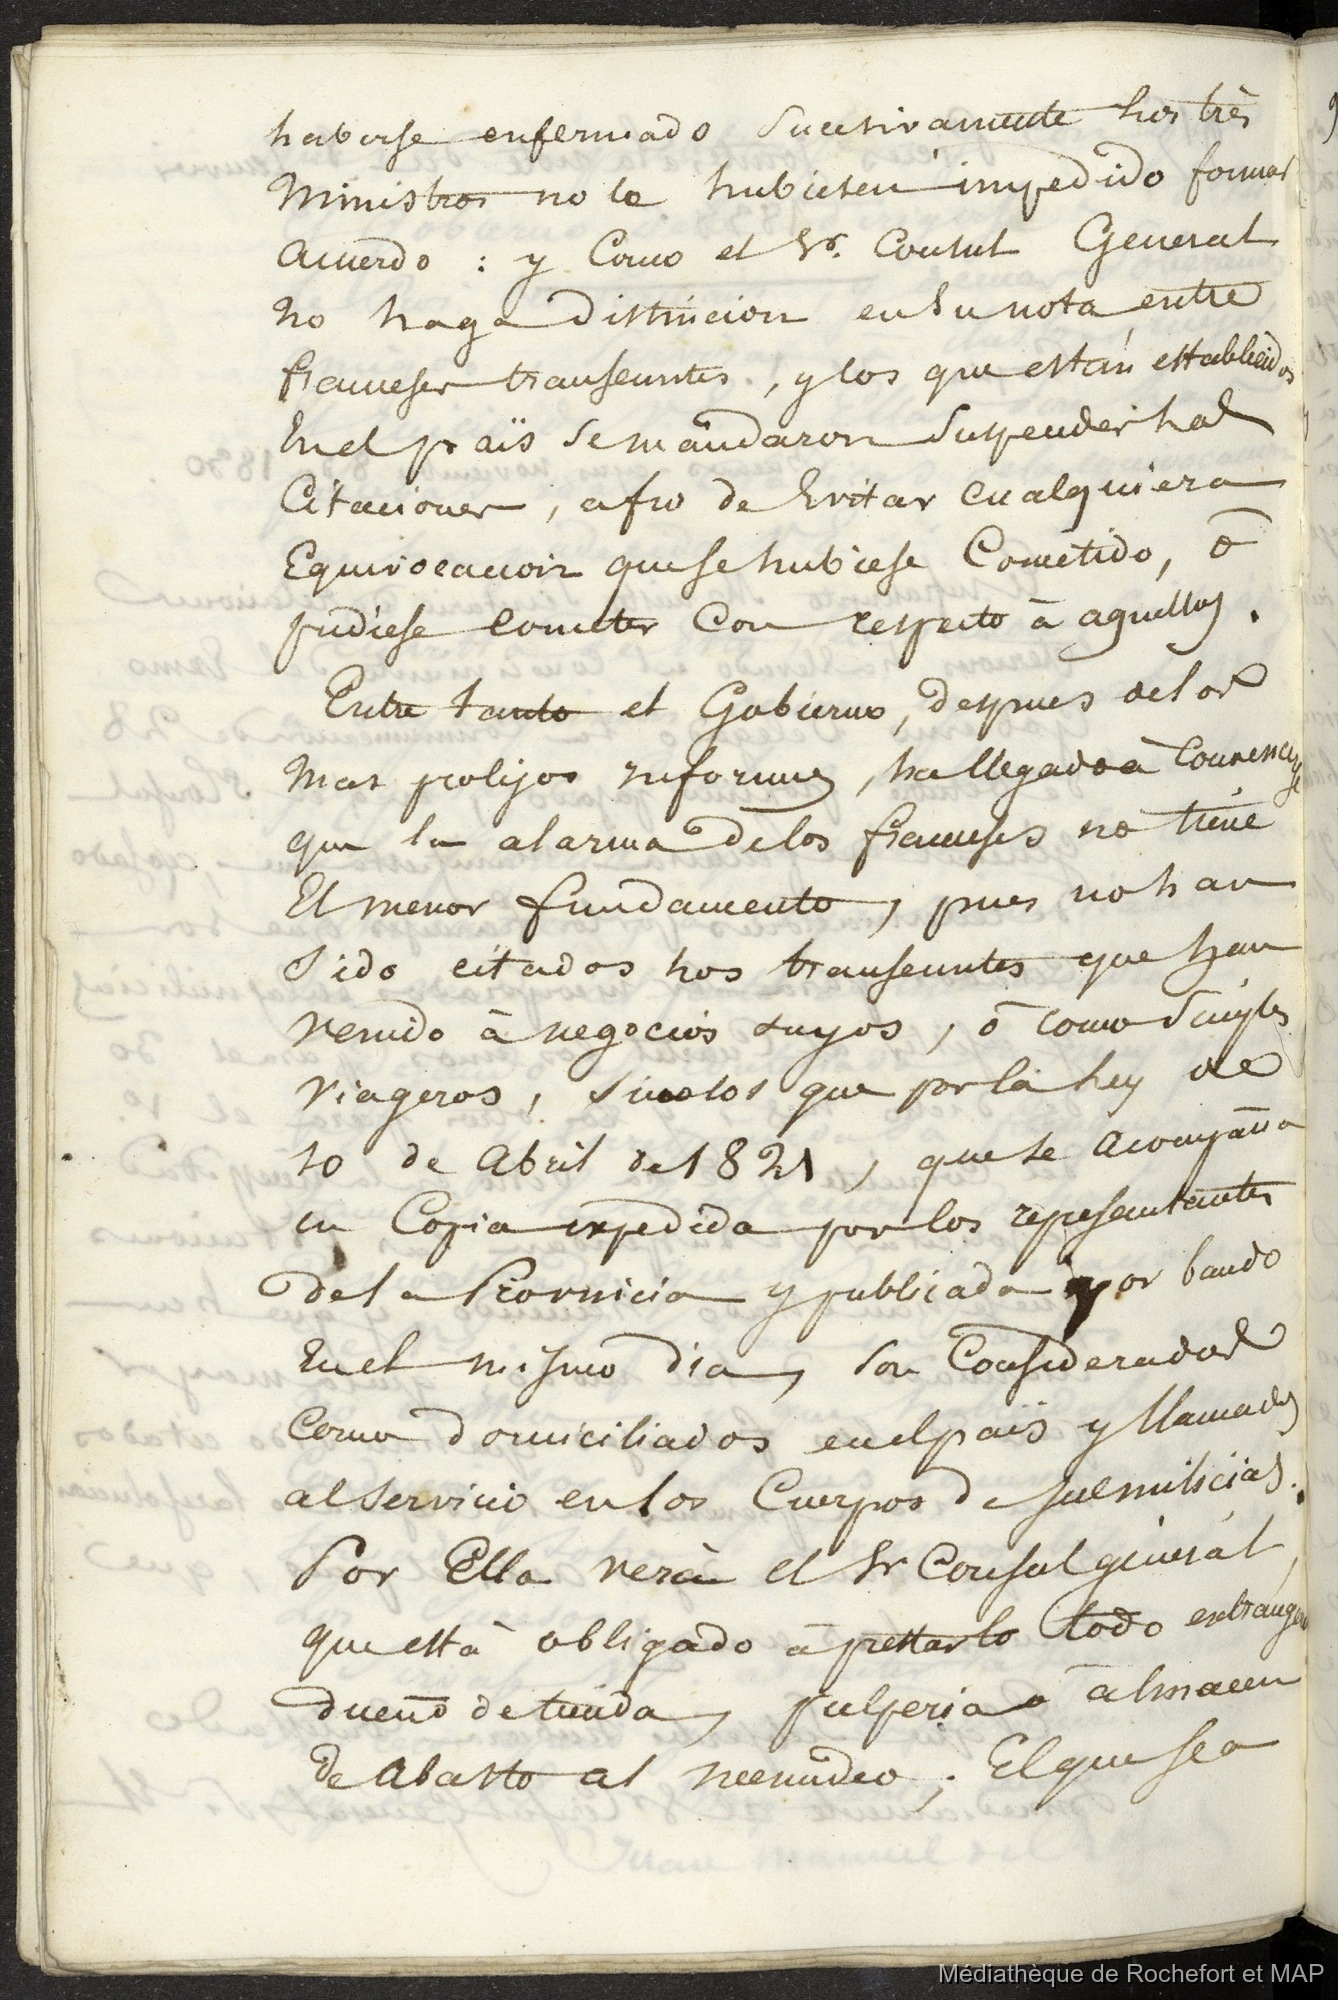 haberse enfermado sucesivamente los tres
Ministros no le hubiesen impedido formar
acuerdo : y como el Sr. Consul General
no haga distincion en su nota, entre
franceses transeuntes, y los que están establecidos
en el païs se mandaron suspender las
Citaciones, afin de Evitar cualquiera
Equivocacion que se hubiese Cometido, ó
pudiese cometer con respecto à aquellos.
Entre tanto el Gobierno, despues de los
mas prolijos informes, ha llegado à convencerse
que la alarma de los franceses no tiene
El menor fundamento, pues no han
Sido citados los transeuntes que han
venido à negocios suyos, ó como Simples
viageros, sino los que por la ley de
10 de Abril de 1821, que se acompaña
en Copia expedida por los representantes
de la Provincia y publicada por bando
en el mismo dia, son Considerados
como domiciliados en el païs y llamados
al servicio en los Cuerpos de sus milicias.
Por Ella verà el Sr Consul géneral,
que està obligado à prestarlo todo extrangero
dueño de tienda, pulperia o almacen
de Abasto al menudeo; El que sea
Médiathèque de Rochefort et MAP